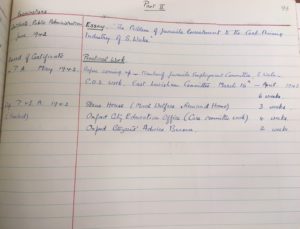 Part II
93
Examinations
Public Administration
June 1942
Essay. "The Problem of Juvenile Recruitment to the Coal Mining
Industry of S. Wales."
of Certificate
May 1942
Practical Work
Member of Juvenile Employment Committee, S. Wales
C.O.S. work, East Lewisham Committee, March - April 1942
6 weeks.
1942
Stone House (Moral Welfare Remand Home) 3 weeks
Oxford City Education Office (Care Committee work) 4 weeks
Oxford Citizens' Advice Bureau. 2 weeks